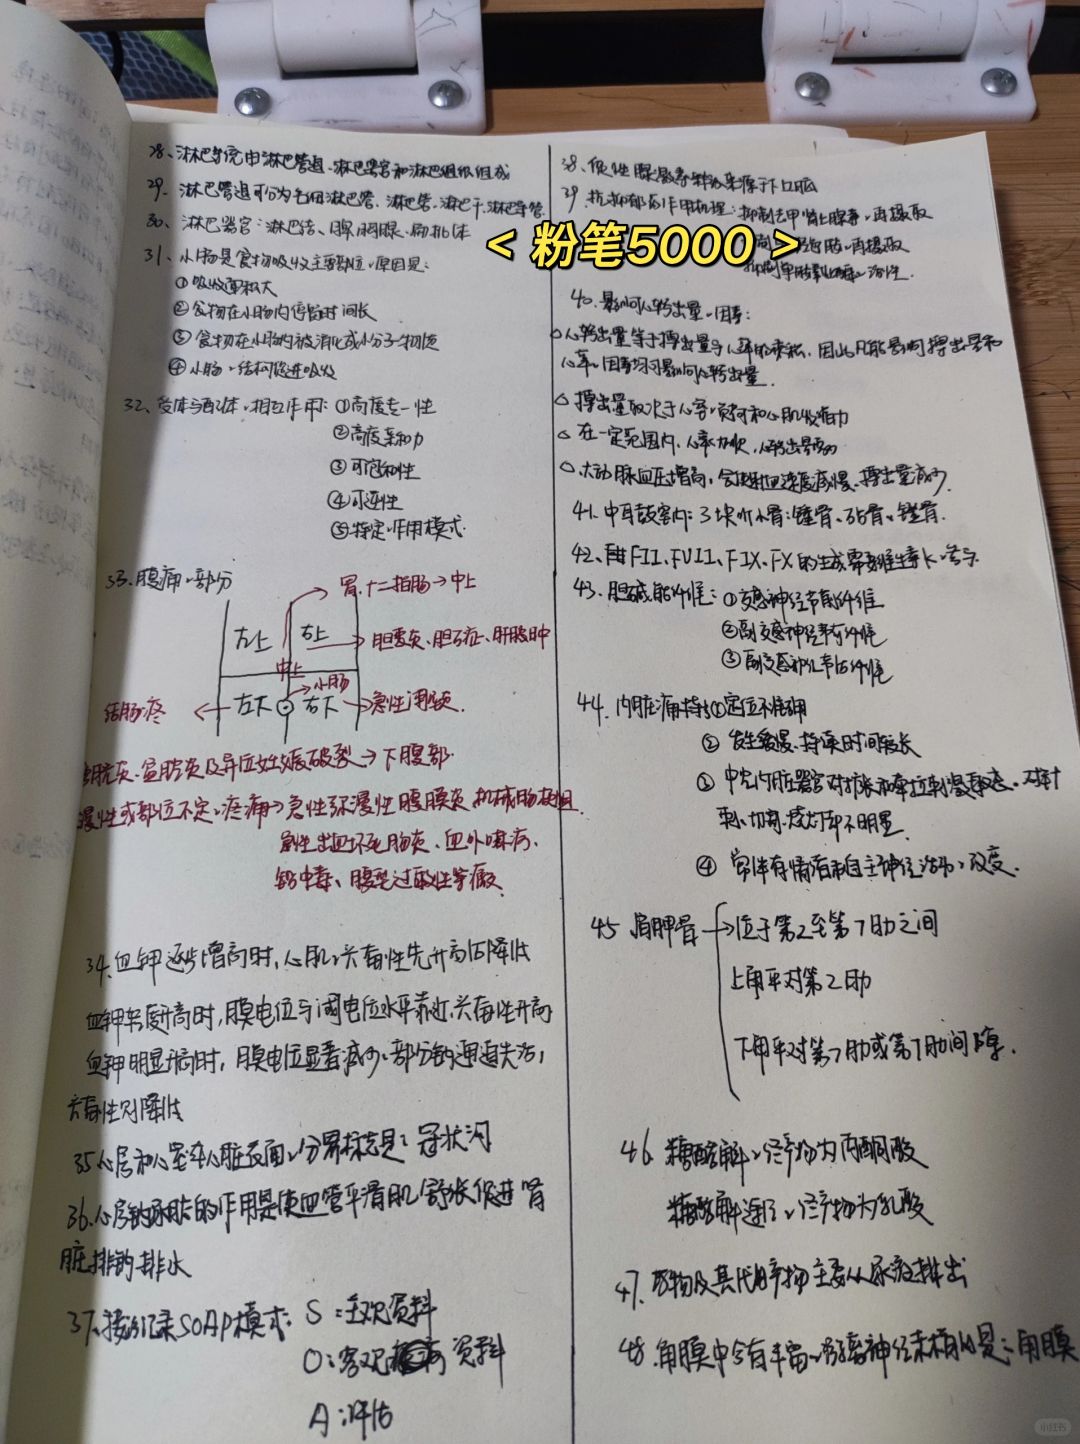 28、淋巴系统由淋巴管道、淋巴器官和淋巴组织组成
29、淋巴管道可分为毛细淋巴管、淋巴管、淋巴干、淋巴导管
30、淋巴器官：淋巴结、脾、胸腺、扁桃体
31、小肠是食物吸收主要部位，原因是：
①吸收面积大
②食物在小肠内停留时间长
③食物在小肠内被消化成小分子物质
④小肠、结构促进吸收
32、受体与配体、相互作用：①高度专一性
②高度亲和力
③可饱和性
④可逆性
⑤特定作用模式
33、腹痛、部分
胃、十二指肠→中上
左上
右上
胆囊炎、胆石症、肝脓肿
中上
小肠
结肠疼
左下
右下
急性阑尾炎
膀胱炎、盆腔炎及异位妊娠破裂→下腹部
弥漫性或部位不定、疼痛→急性弥漫性腹膜炎 机械肠梗阻
急性出血坏死肠炎、血卟啉病、
铅中毒、腹型过敏性紫癜
34、血钾逐步增高时，心肌、兴奋性先升高后降低
血钾轻度升高时，膜电位与阈电位水平靠近，兴奋性升高
血钾明显升高时，膜电位显著减少、部分钠通道失活，
兴奋性则降低
35、心房和心室在心脏表面、分界标志是：冠状沟
36、心房钠尿肽的作用是使血管平滑肌舒张促进肾
脏排钠排水
37、接诊记录SOAP模式：S：主观资料
O：客观 资料
A：评估
38、促性腺激素释放 来源于下丘脑
39、抗抑郁药作用机理：抑制去甲肾上腺素、再摄取
再摄取
抑制单胺氧化酶、活性
< 粉笔5000 >
40、影响心输出量、因素：
心输出量等于搏出量与心率的乘积，因此凡能影响搏出量和
心率、因素均可影响心输出量．
搏出量取决于心室、负荷和心肌收缩力
在一定范围内，心率加快，心输出量增加
大动脉血压增高，会使射血速度减慢、搏出量减少
41、中耳鼓室内：3块听小骨：锤骨、砧骨、镫骨．
42、FII、FVII、FIX、FX的生成需要维生素K、参与
43、胆碱能纤维：①交感神经节前纤维
②副交感神经节前纤维
③副交感神经节后纤维
44、内脏痛特点①定位不准确
②发生缓慢、持续时间较长
③中空内脏器官对扩张和牵拉刺激敏感、对针
刺、切割、烧灼却不明显
④常伴有情绪和自主神经活动、改变．
45、肩胛骨→位于第2至第7肋之间
上角平对第2肋
下角平对第7肋或第7肋间隙．
46、糖酵解、终产物为丙酮酸
糖酵解途径、终产物为乳酸
47、药物及其代谢产物主要从尿液排出
48、角膜中含有丰富、游离神经末梢的是：角膜
小红书